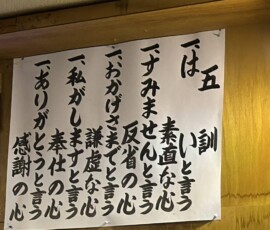 五訓
一、はいと言う
素直な心
一、すみませんと言う
反省の心
一、おかげさまでと言う
謙虚な心
一、私がしますと言う
奉仕の心
一、ありがとうと言う
感謝の心